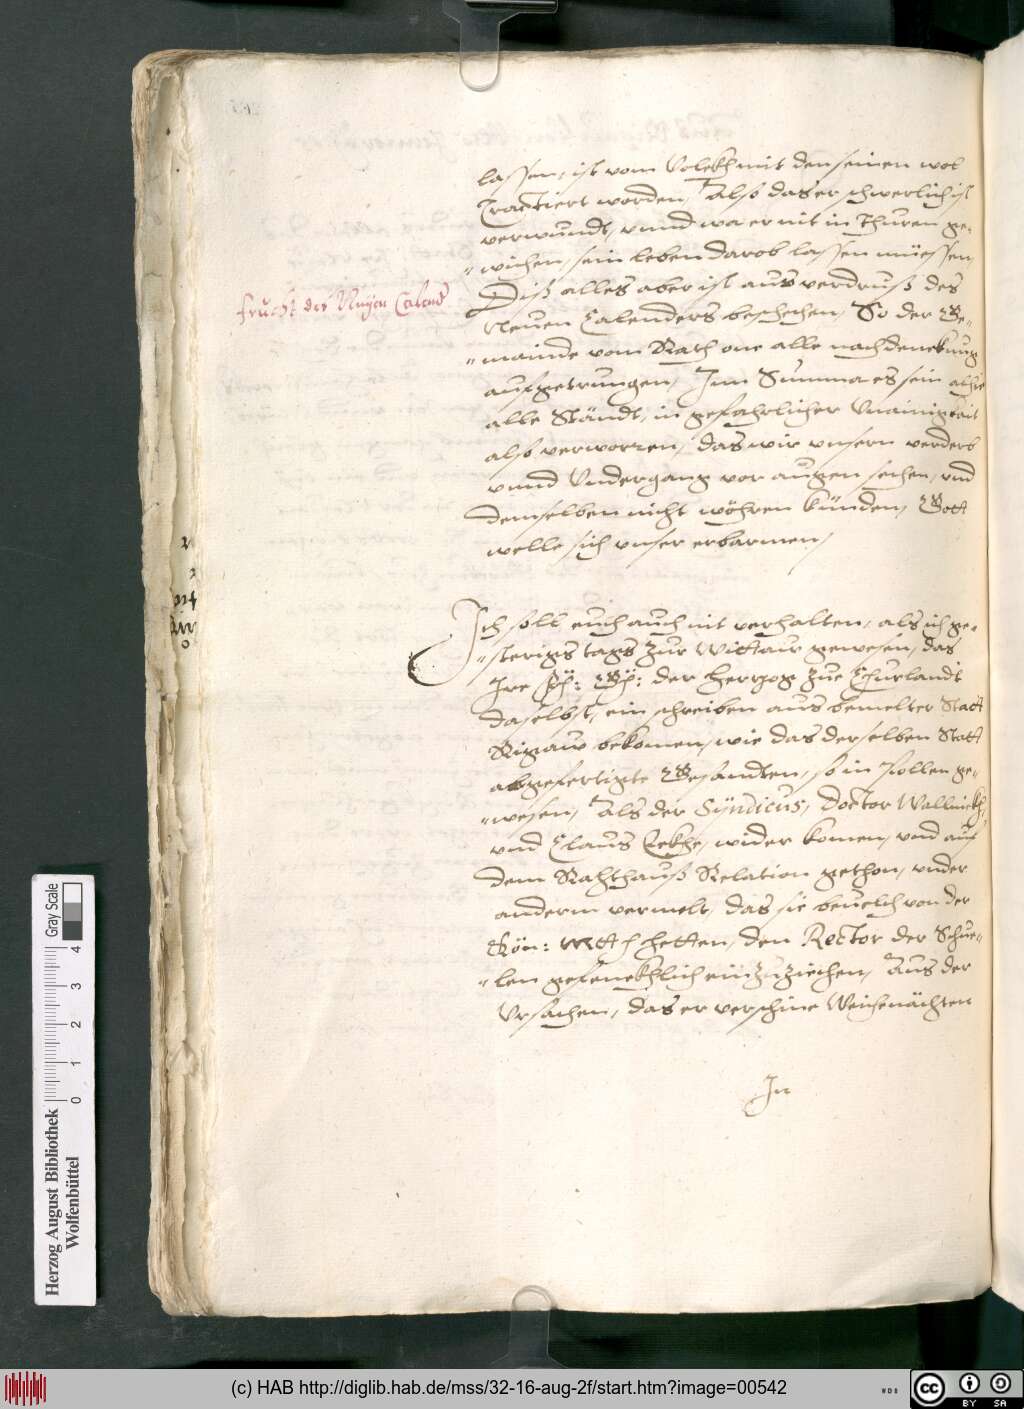 lassen, ist vom Volckh mit den seinen wol
Tractiert worden, Also das er schwerlich ist
verwundt, vnnd wa er nit in Thuren ge-
"wichen, sein leben darob lassen müessen,
Diß alles aber ist aus verdruß des
Frucht des Nuyen Calend
Neuen Calenders beschechen, So der Ge-
"mainde vom Rath one alle nachdenckung
aufgetrungen, Inn Summa es sein alhie
alle Ständt, in gefahrlicher Vnainigkait
also verworren, das wir vnsern verderb
vnnd Vndergang vor augen sechen, vnd
demselben nicht wöhren künden, Gott
welle sich vnser erbarmen,
Ich soll euch auch nit verhalten, als ich ge-
"sterigs tags zur Mittaw gewesen, das
Ire Fr: Gn: der Hertzog zue Churlandt
daselbst, ein schreiben aus bemelter Statt
Rigaw bekomen, wie das derselben Statt
abgefertigte Gesandten, so in Pollen ge-
"wesen, Als der Syndicus, Doctor Wellinckh,
vnd Claus Eckhe, wider komen, vnd auf
dem Rahthauß Relation gethon, vnder
anderm vermelt, das sie beuelch von der
Kön: Mtt hetten, den Rector der Schue-
"len gefenckhlich einzuziechen, Aus der
Vrsachen, das er verschine Weichenächten
In
Herzog August Bibliothek
Wolfenbüttel
0 1 2 3 4
Gray Scale
(c) HAB http://diglib.hab.de/mss/32-16-aug-2f/start.htm?image=00542
WDB
cc BY SA